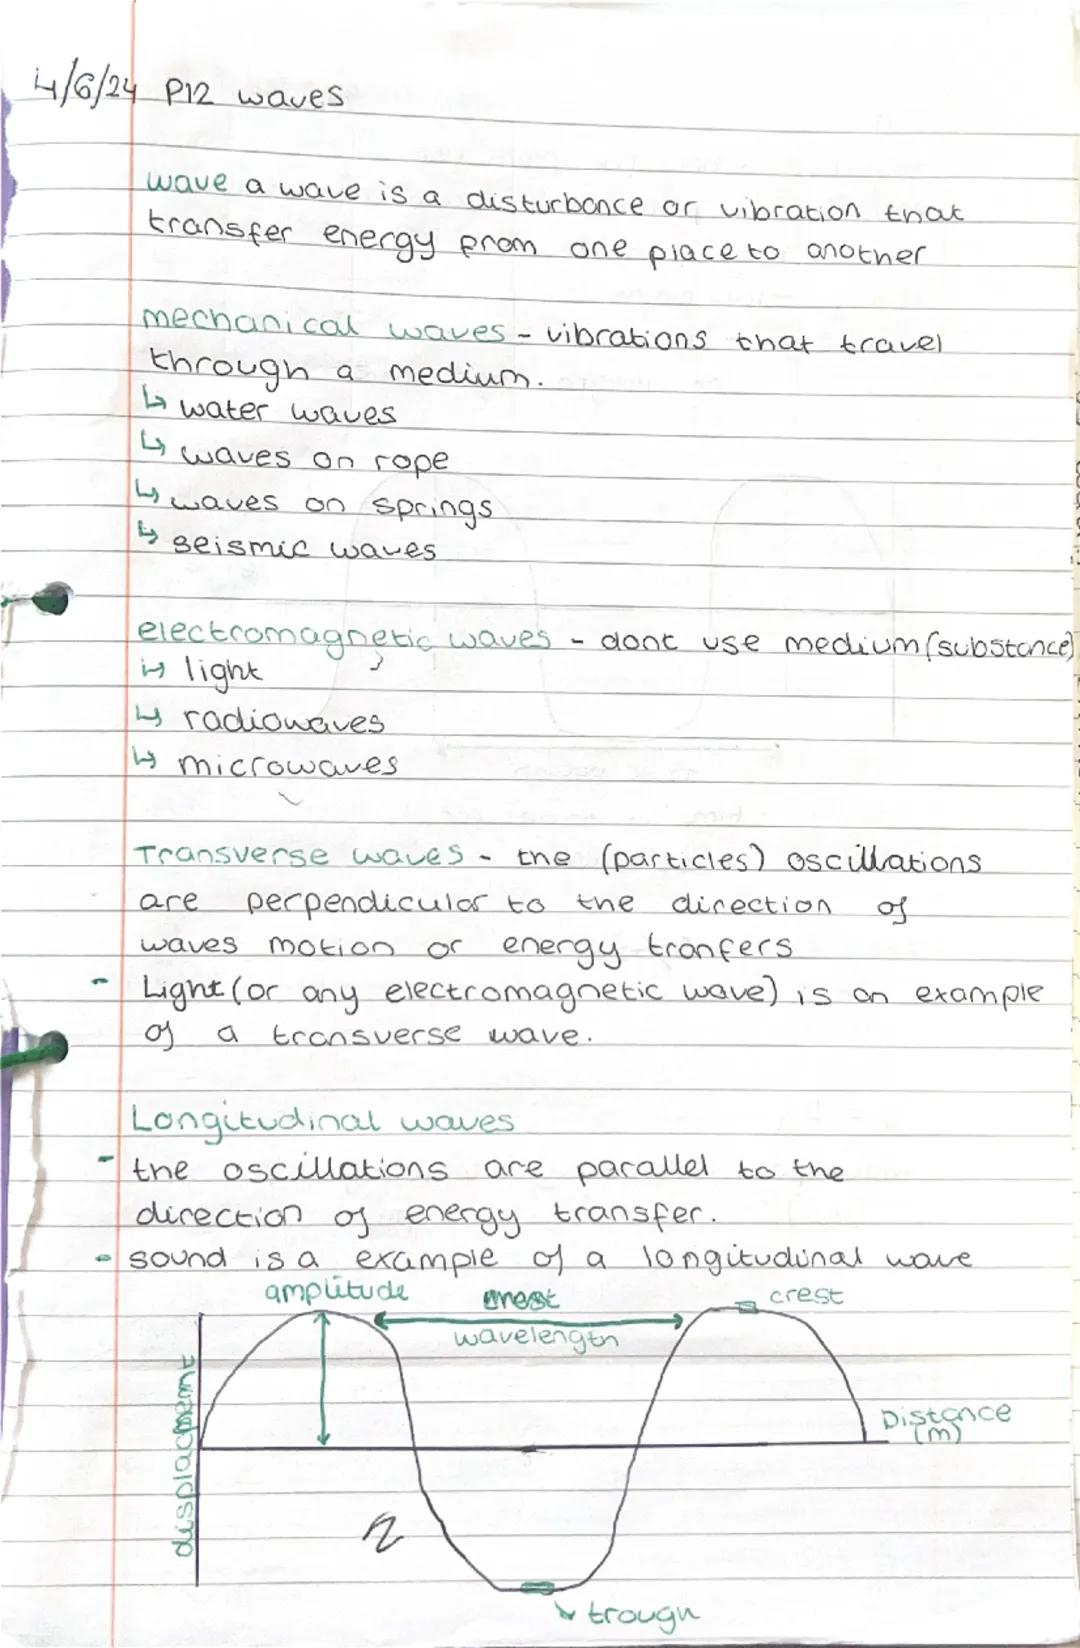 4/6/24 P12 waves
wave a wave is a disturbance or vibration that
transfer energy prom one place to another
mechanical waves - vibrations that travel
through a medium.
↳ water waves
↳ waves on rope
↳ waves on springs
↳ seismic waves
electromagnetic waves - dont use medium (substance)
↳ light
↳ radiowaves
↳ microwaves
Transverse waves - the (particles) oscillations
are perpendicular to the direction of
waves motion or energy tranfers
- Light (or any electromagnetic wave) is an example
of a transverse wave.
Longitudinal waves
- the oscillations are parallel to the
direction of energy transfer.
- sound is a example of a longitudinal wave
amplitude
crest
wavelength
displacment
Distance
(m)
trough